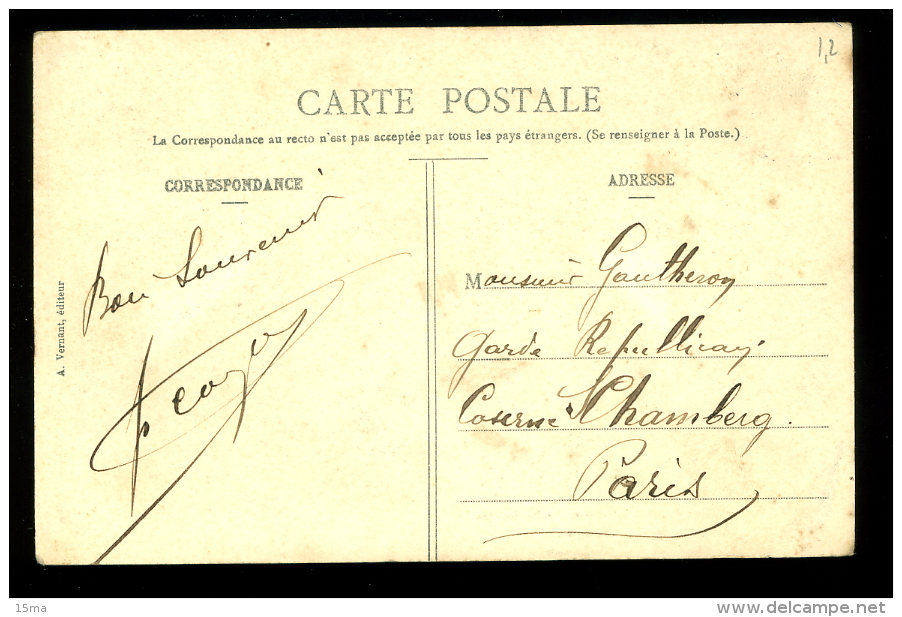 1,2
CARTE POSTALE
La Correspondance au recto n'est pas acceptée par tous les pays étrangers. (Se renseigner à la Poste.)
CORRESPONDANCE
Bon Souvenir
A. Vernant, éditeur
ADRESSE
Monsieur Gautheron
Garde Republicain
Caserne Schamberg.
Paris
15ma
http://www.delcampe.net